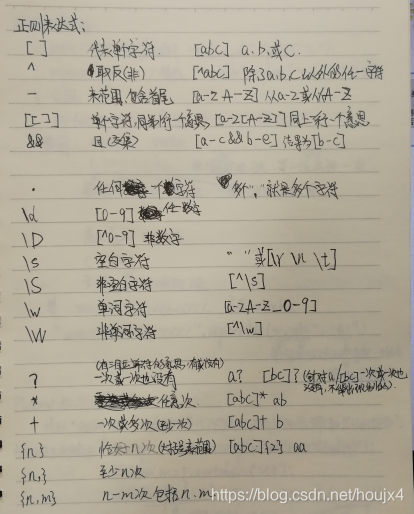 正则表达式:
[ ] 代表单字符 [abc] a、b、或c.
^ 取反(非) [^abc] 除了a、b、c以外的任一字符
- 表范围,包含首尾 [a-zA-Z] 从a-z或从A-Z
[[]] 单个字符,同上一行一个意思 [a-z[A-Z]] 同上一行一个意思
&& 且(交集) [a-c&&b-e] 结果为[b-c]
. 任何一个字符 多个"."就是多个字符
\d [0-9] 任一数字
\D [^0-9] 非数字
\s 空白字符 " "或[\r \n \t]
\S 非空白字符 [^\s]
\w 单词字符 [a-zA-Z_0-9]
\W 非单词字符 [^\w]
? 一次或一次也没有 a? [bc]? (针对a/[bc]一次或一次也
* 任意次 [abc]* ab
+ 一次或多次(至少一次) [abc]+ b
{n} 恰好n次 [abc]{2} aa
{n,} 至少n次
{n,m} n-m次 包括n.m
https://blog.csdn.net/houjx4